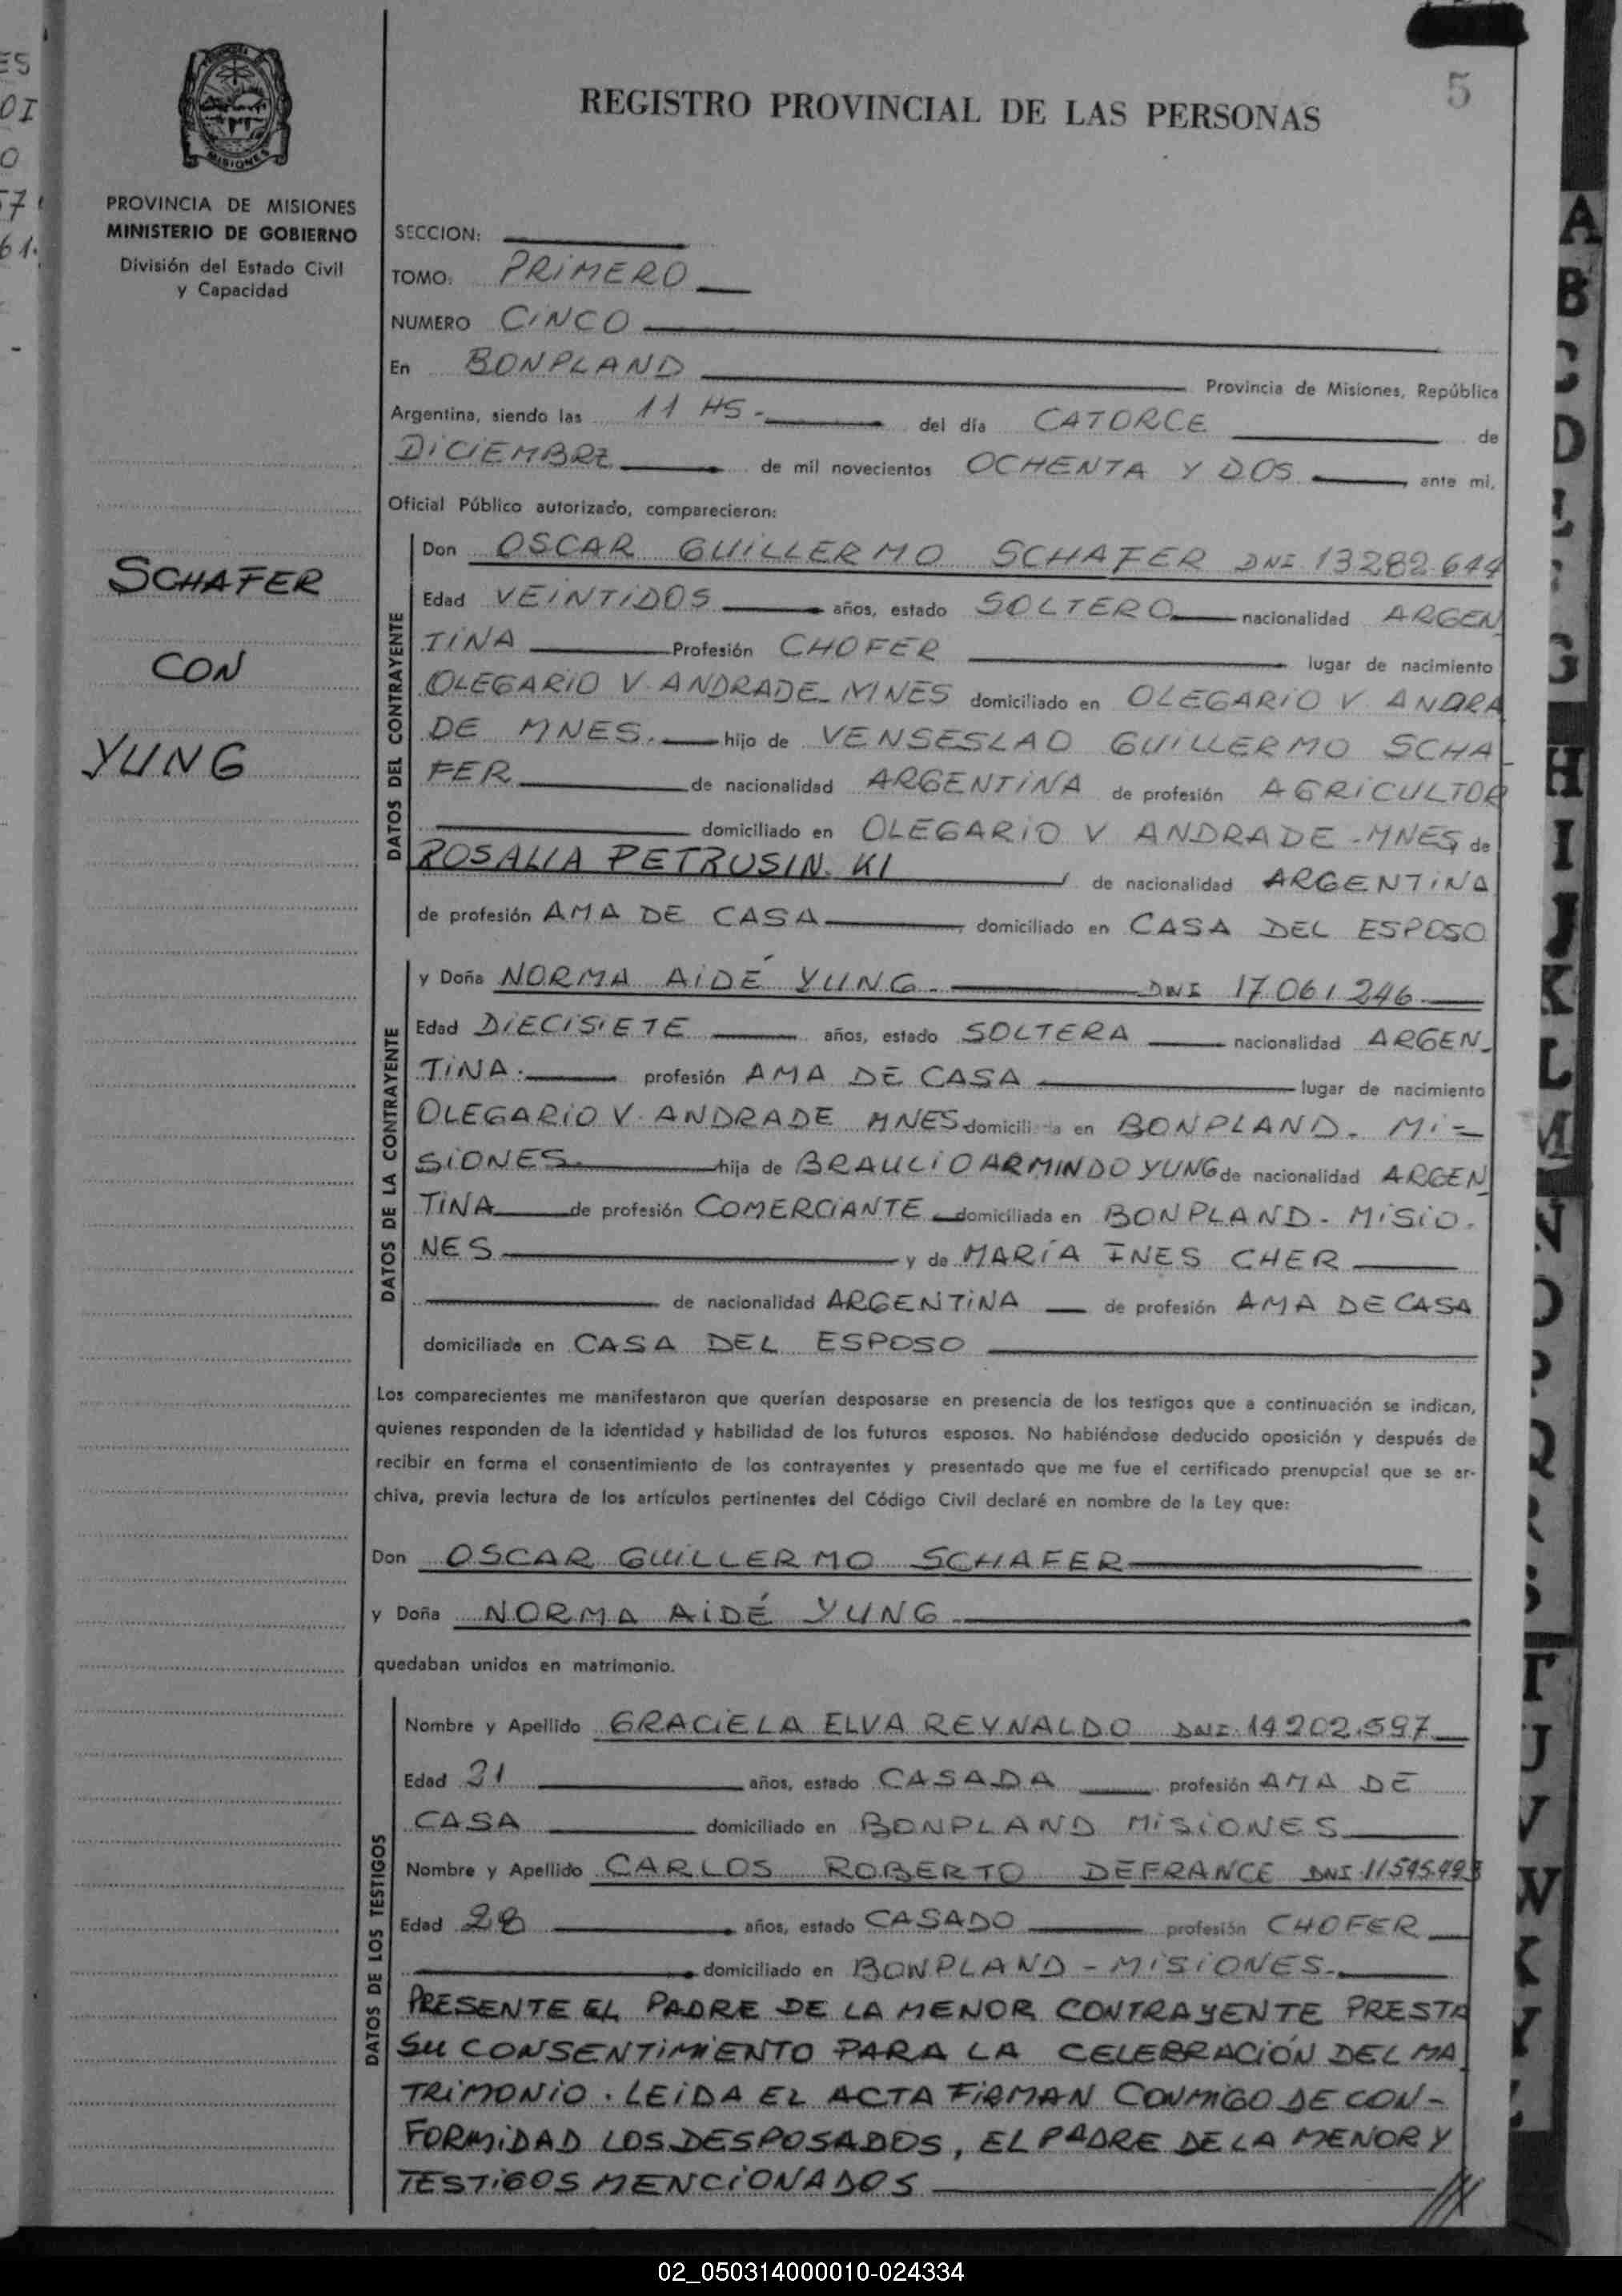 ES
OI
O
57
61.
5
REGISTRO PROVINCIAL DE LAS PERSONAS
MISIONES
PROVINCIA DE MISIONES
MINISTERIO DE GOBIERNO
División del Estado Civil
y Capacidad
SCHAFER
CON
YUNG
SECCION:
TOMO: PRIMERO
NUMERO CINCO
En BONPLAND Provincia de Misiones, República
Argentina, siendo las 11 HS - del día CATORCE de
DICIEMBRE de mil novecientos OCHENTA Y DOS ante mi,
Oficial Público autorizado, comparecieron:
DATOS DEL CONTRAYENTE
Don OSCAR GUILLERMO SCHAFER DNI 13282.644
Edad VEINTIDOS años, estado SOLTERO nacionalidad ARGEN
TINA Profesión CHOFER lugar de nacimiento
OLEGARIO V. ANDRADE MNES domiciliado en OLEGARIO V ANDRA
DE MNES. hijo de VENSESLAO GUILLERMO SCHA
FER de nacionalidad ARGENTINA de profesión AGRICULTOR
domiciliado en OLEGARIO V ANDRADE -MNES y de
ROSALIA PETRUSIN.KI de nacionalidad ARGENTINA
de profesión AMA DE CASA domiciliado en CASA DEL ESPOSO
DATOS DE LA CONTRAYENTE
y Doña NORMA AIDÉ YUNG. DNI 17.061.246
Edad DIECISIETE años, estado SOLTERA nacionalidad ARGEN-
TINA. profesión AMA DE CASA lugar de nacimiento
OLEGARIO V. ANDRADE MNES domiciliada en BONPLAND. MI-
SIONES. hija de BRAULIO ARMINDO YUNG de nacionalidad ARGEN
TINA de profesión COMERCIANTE domiciliada en BONPLAND - MISIO.
NES y de MARÍA INES CHER
de nacionalidad ARGENTINA de profesión AMA DE CASA
domiciliada en CASA DEL ESPOSO
Los comparecientes me manifestaron que querían desposarse en presencia de los testigos que a continuación se indican,
quienes responden de la identidad y habilidad de los futuros esposos. No habiéndose deducido oposición y después de
recibir en forma el consentimiento de los contrayentes y presentado que me fue el certificado prenupcial que se ar-
chiva, previa lectura de los artículos pertinentes del Código Civil declaré en nombre de la Ley que:
Don OSCAR GUILLERMO SCHAFER
y Doña NORMA AIDÉ YUNG
quedaban unidos en matrimonio.
DATOS DE LOS TESTIGOS
Nombre y Apellido GRACIELA ELVA REYNALDO DNI. 14.202.597
Edad 21 años, estado CASADA profesión AMA DE
CASA domiciliado en BONPLAND MISIONES
Nombre y Apellido CARLOS ROBERTO DEFRANCE DNI.
Edad 28 años, estado CASADO profesión CHOFER
domiciliado en BONPLAND - MISIONES.
PRESENTE EL PADRE DE LA MENOR CONTRAYENTE PRESTA
SU CONSENTIMIENTO PARA LA CELEBRACIÓN DEL MA
TRIMONIO. LEIDA EL ACTA FIRMAN CONMIGO DE CON-
FORMIDAD LOS DESPOSADOS, EL PADRE DE LA MENOR Y
TESTIGOS MENCIONADOS
A
B
C
D
G
H
I
J
K
L
M
N
O
P
Q
R
S
T
U
V
W
X
Y
02_050314000010-024334